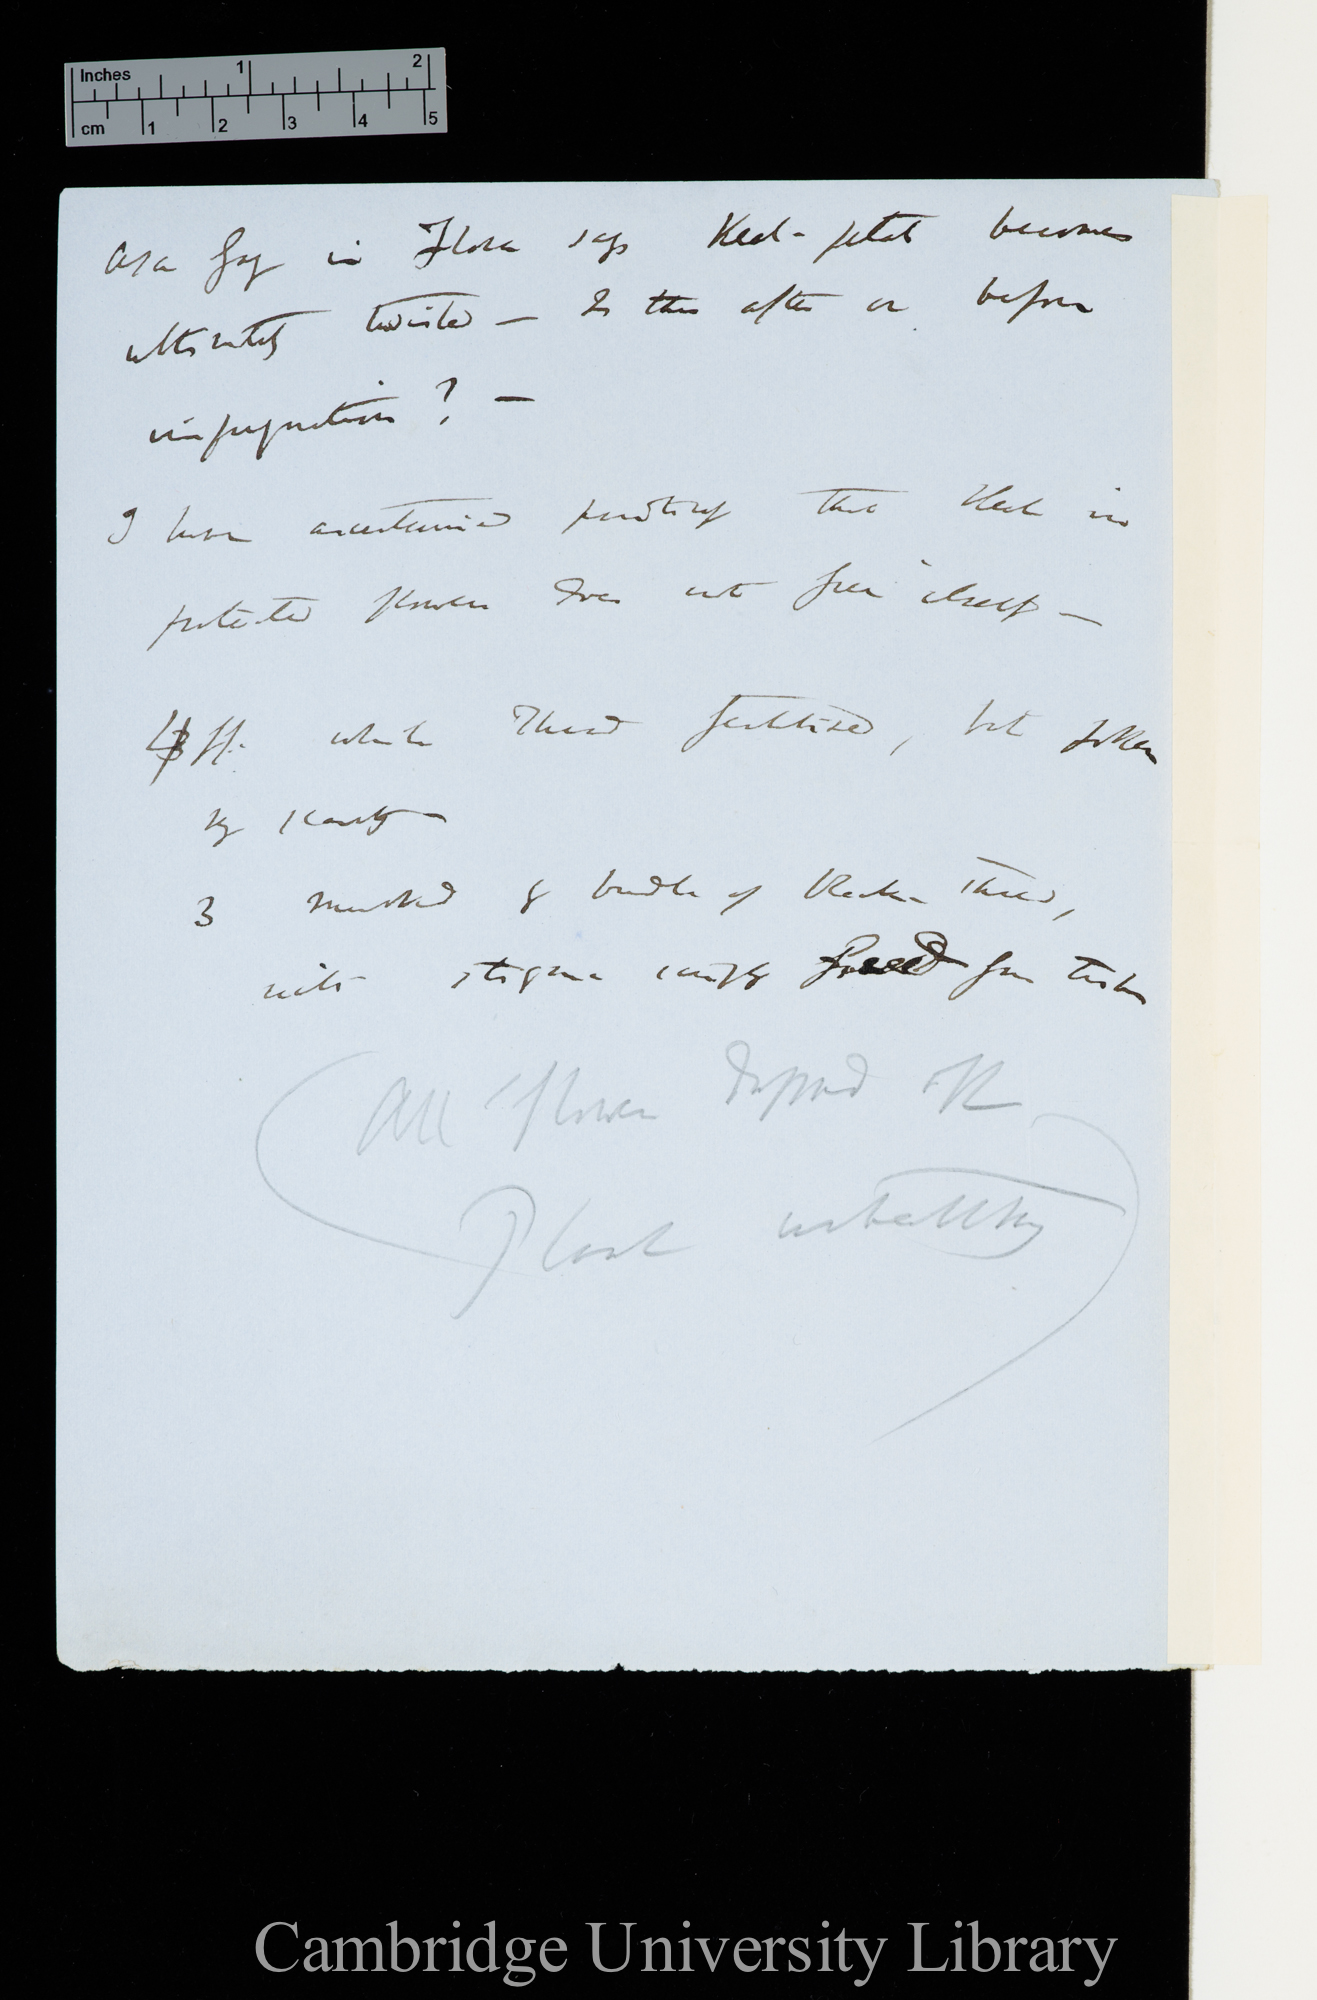 Inches 1 2
cm 1 2 3 4 5
Asa Gray in Flora says Keel-petals becomes
ultimately twisted — Is this after or before
impregnation? —
I have ascertained positively that Keel in
protected flowers does not free itself —
fl. white Thread fertilised, but
by
3 marked by bundle of Black thread,
with stigma simply freed from
(All flowers dropped off
Plant unhealthy)
Cambridge University Library